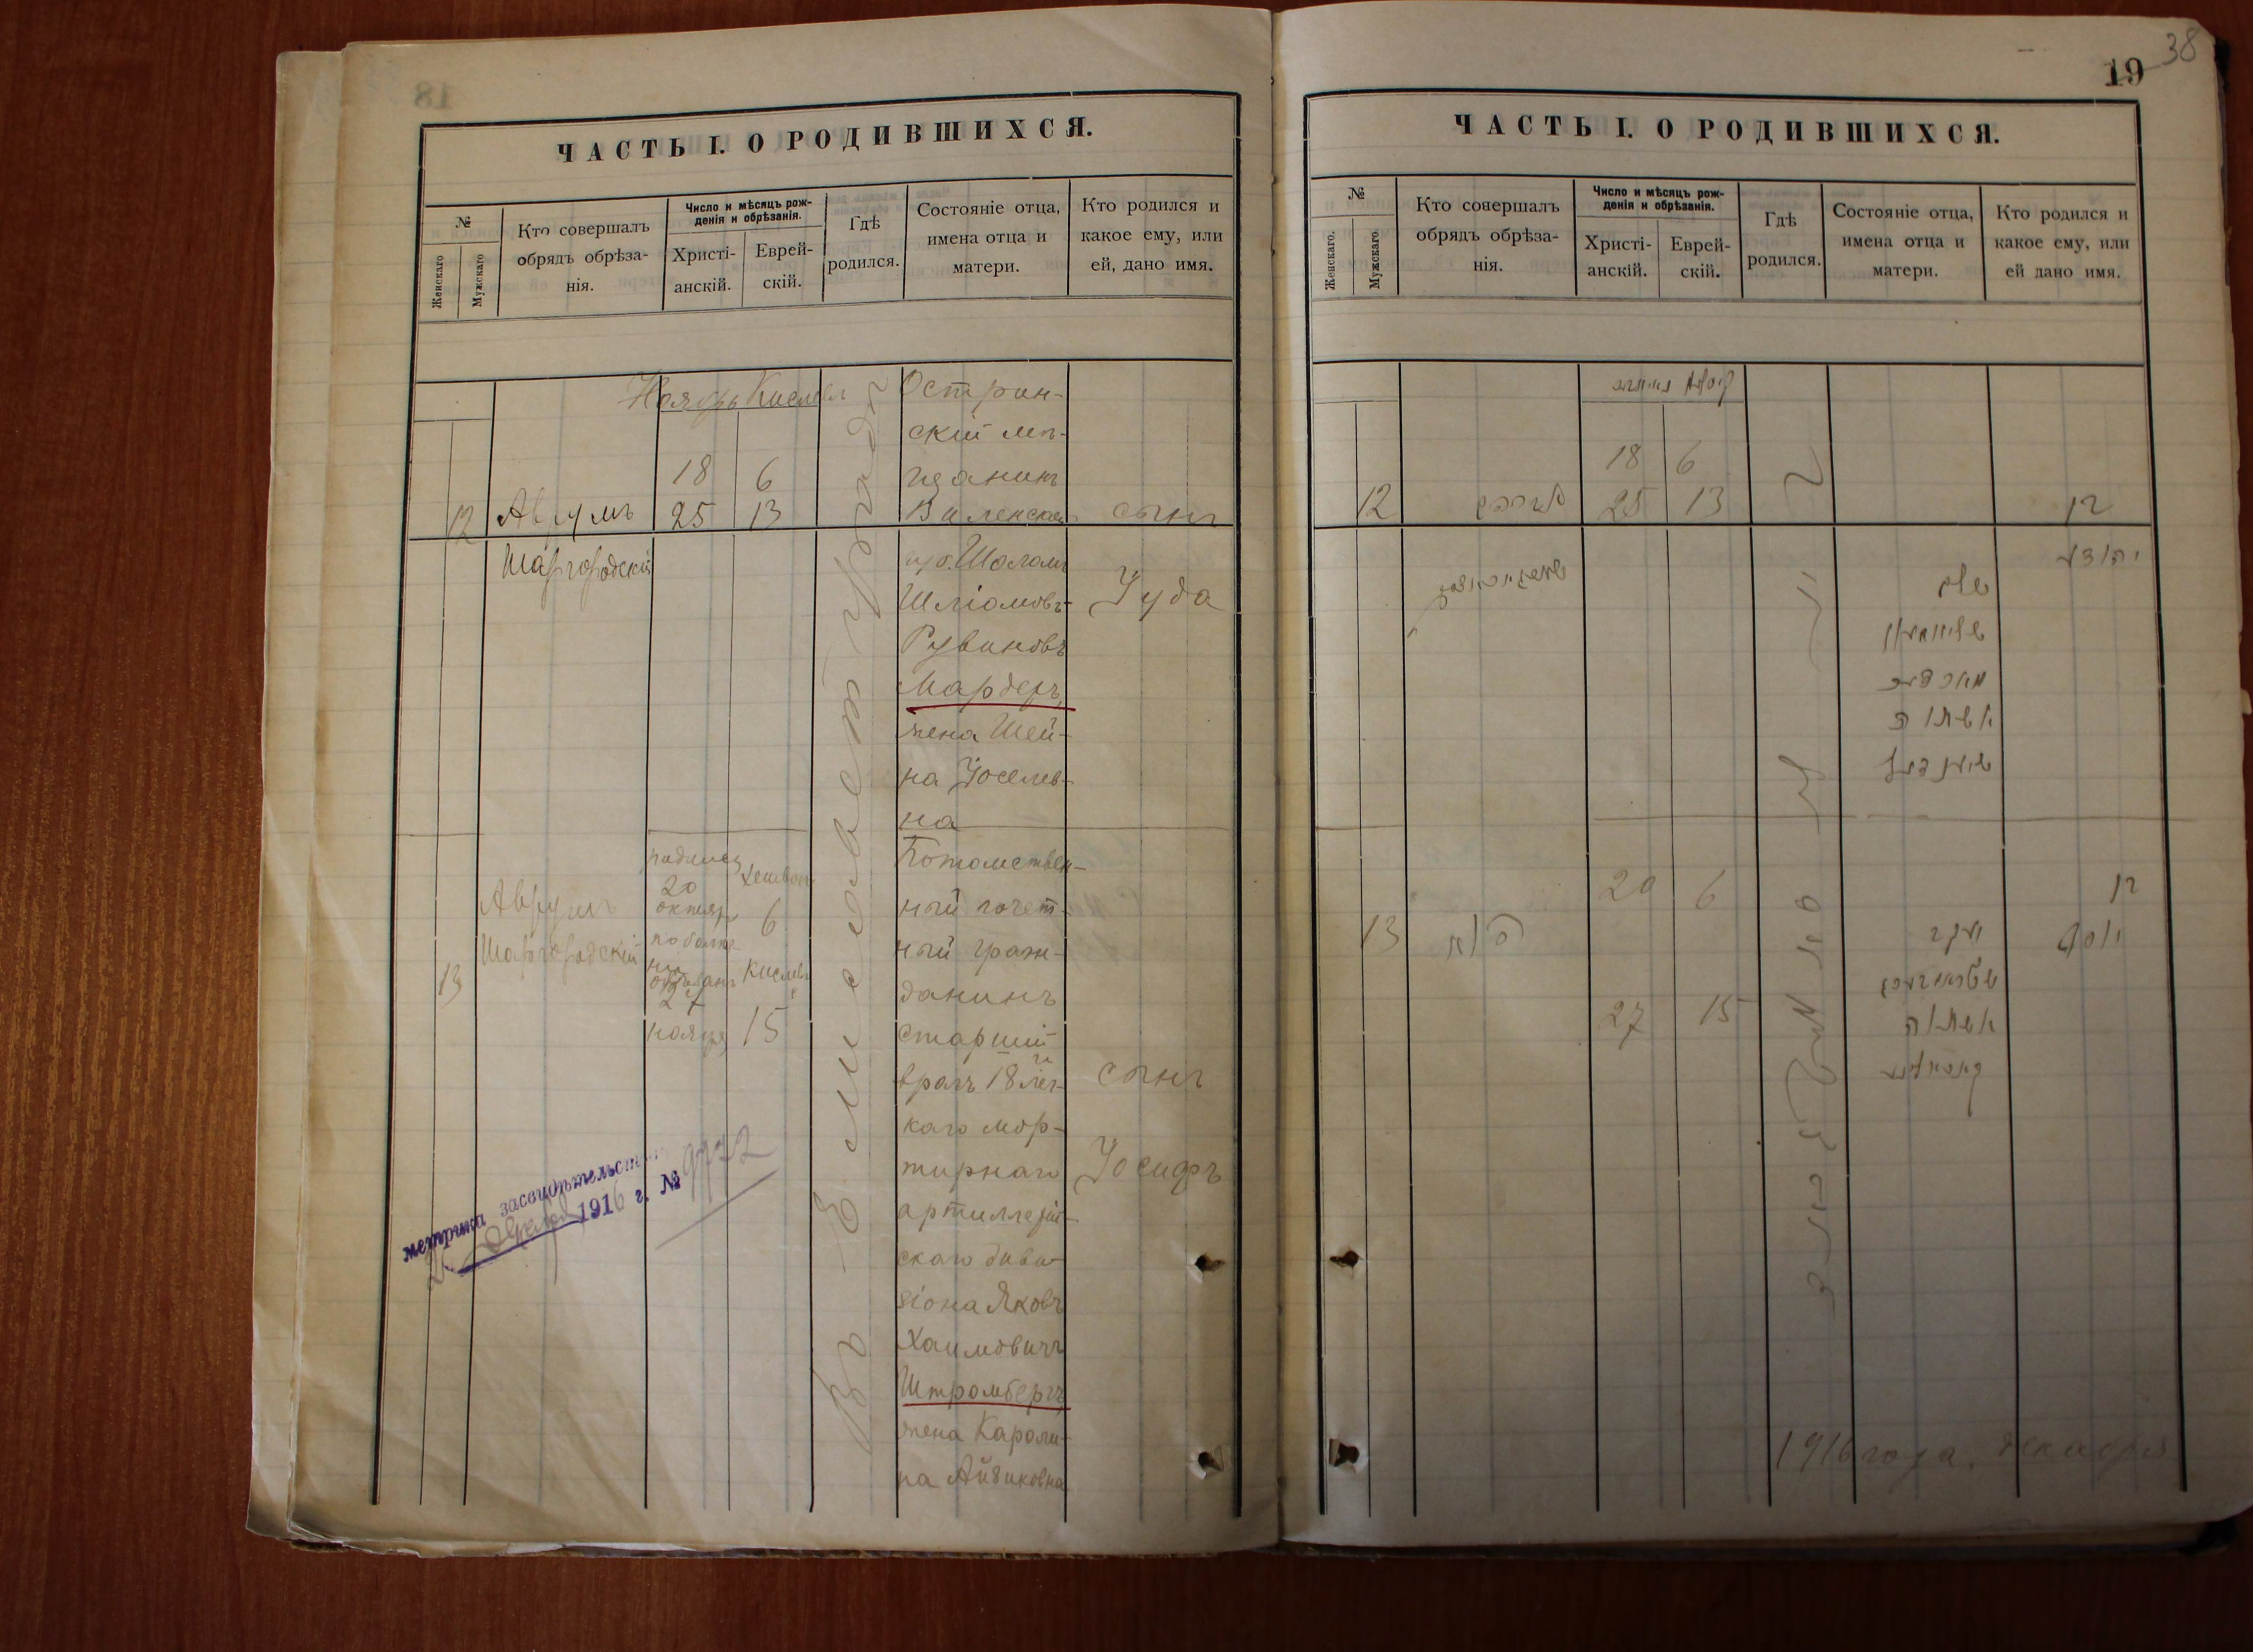 18
ЧАСТЬ I. О РОДИВШИХСЯ.
№
Женскаго
Мужскаго
Кто совершалъ
обрядъ обрѣза-
нія.
Число и мѣсяцъ рож-
денія и обрѣзанія.
Христі-
анскій.
Еврей-
скій.
Гдѣ
родился.
Состояніе отца,
имена отца и
матери.
Кто родился и
какое ему, или
ей, дано имя.
Ноябрь Кислевъ
18 6
12 Аврумъ 25 13
Шаргородскій
Острин-
скій мѣ-
щанинъ
Виленской
губ. Шоломъ
Шліомовъ-
Рувиновъ
Мардеръ,
жена Шей-
на Йоселев-
на
сынъ
Іуда
13
Аврумъ
Шаргородскій
родился
20
октябр
по болѣз-
ни
обрѣзанъ
27
ноября
Хешванъ
6
Кислевъ
15
Въ Елисаветградѣ
Потомствен-
ный почет-
ный граж-
данинъ
старшій
врачъ 18 лег-
каго мор-
тирнаго
артиллерій-
скаго диви-
зіона Яковъ
Хаимовичъ
Штромбергъ,
жена Кароли-
на Айзиковна
сынъ
Іосифъ
метрика засвидѣтельст
1916 г. №
38
19
ЧАСТЬ I. О РОДИВШИХСЯ.
№
Женскаго.
Мужскаго
Кто совершалъ
обрядъ обрѣза-
нія.
Число и мѣсяцъ рож-
денія и обрѣзанія.
Христі-
анскій.
Еврей-
скій.
Гдѣ
родился.
Состояніе отца,
имена отца и
матери.
Кто родился и
какое ему, или
ей дано имя.
18 6
12 אברהם 25 13
בן
יהודא
שלום
אשתו
20 6
13
27 15
יעקב
שטראמבערג
אשתו
בן
יוסף
1916 года. декабря